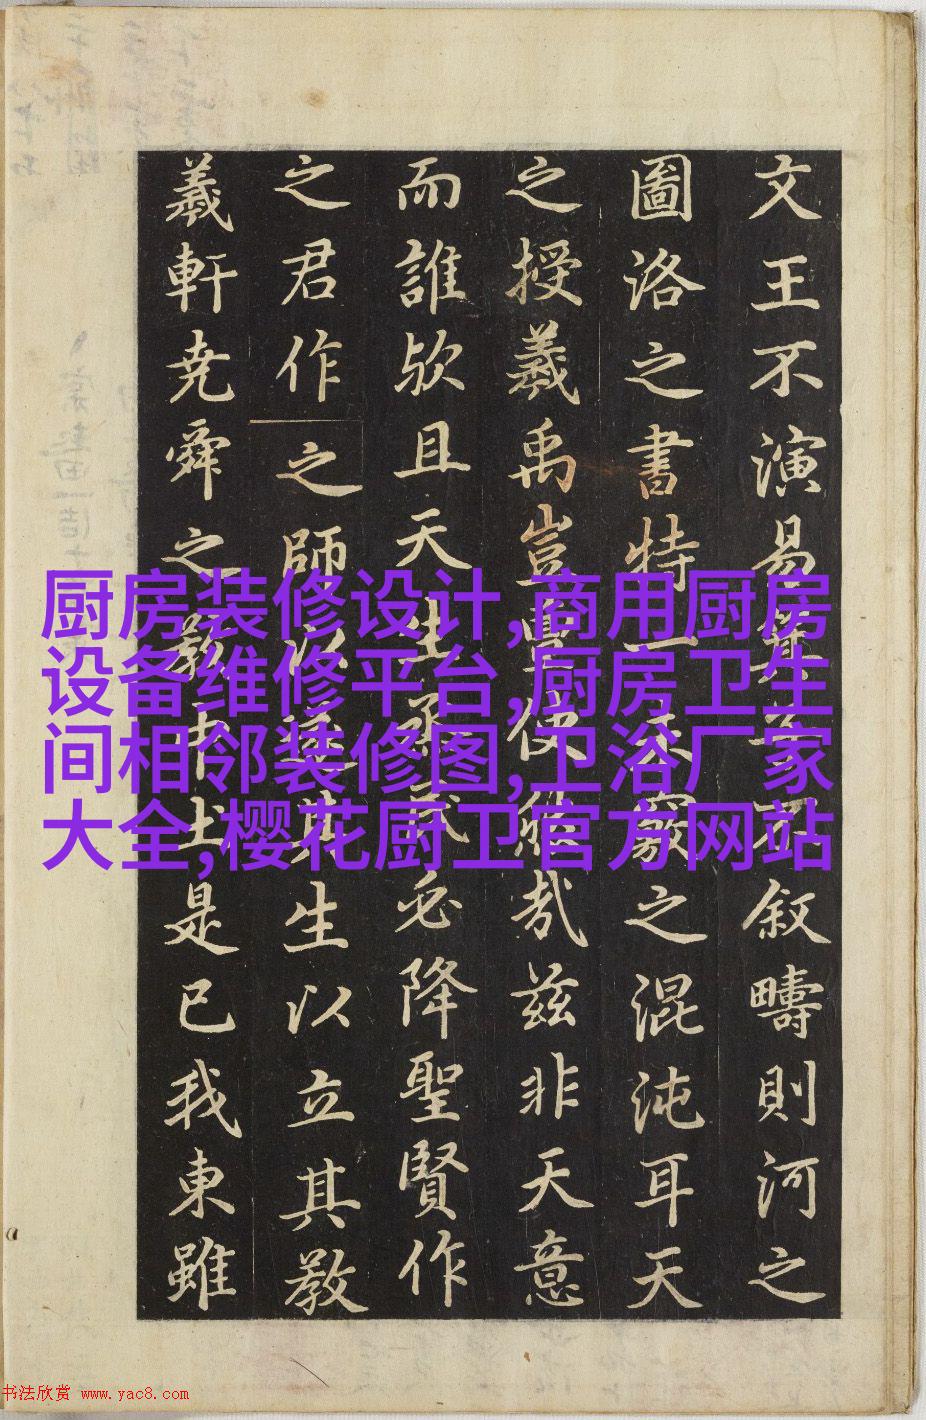 文王不演易子不叙疇則河之
圖洛之書特一未竅之混沌耳天
之授羲禹豈使然哉兹非天意
而誰歟且天生烝民必降聖賢作
之君作之師以遂其生以立其教
羲軒尭舜之教中土是已我東雖
厨房装修设计,商用厨房
设备维修平台,厨房卫生
间相邻装修图,卫浴厂家
大全,樱花厨卫官方网站
书法欣赏 www.yac8.com